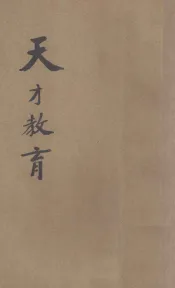 天才教育